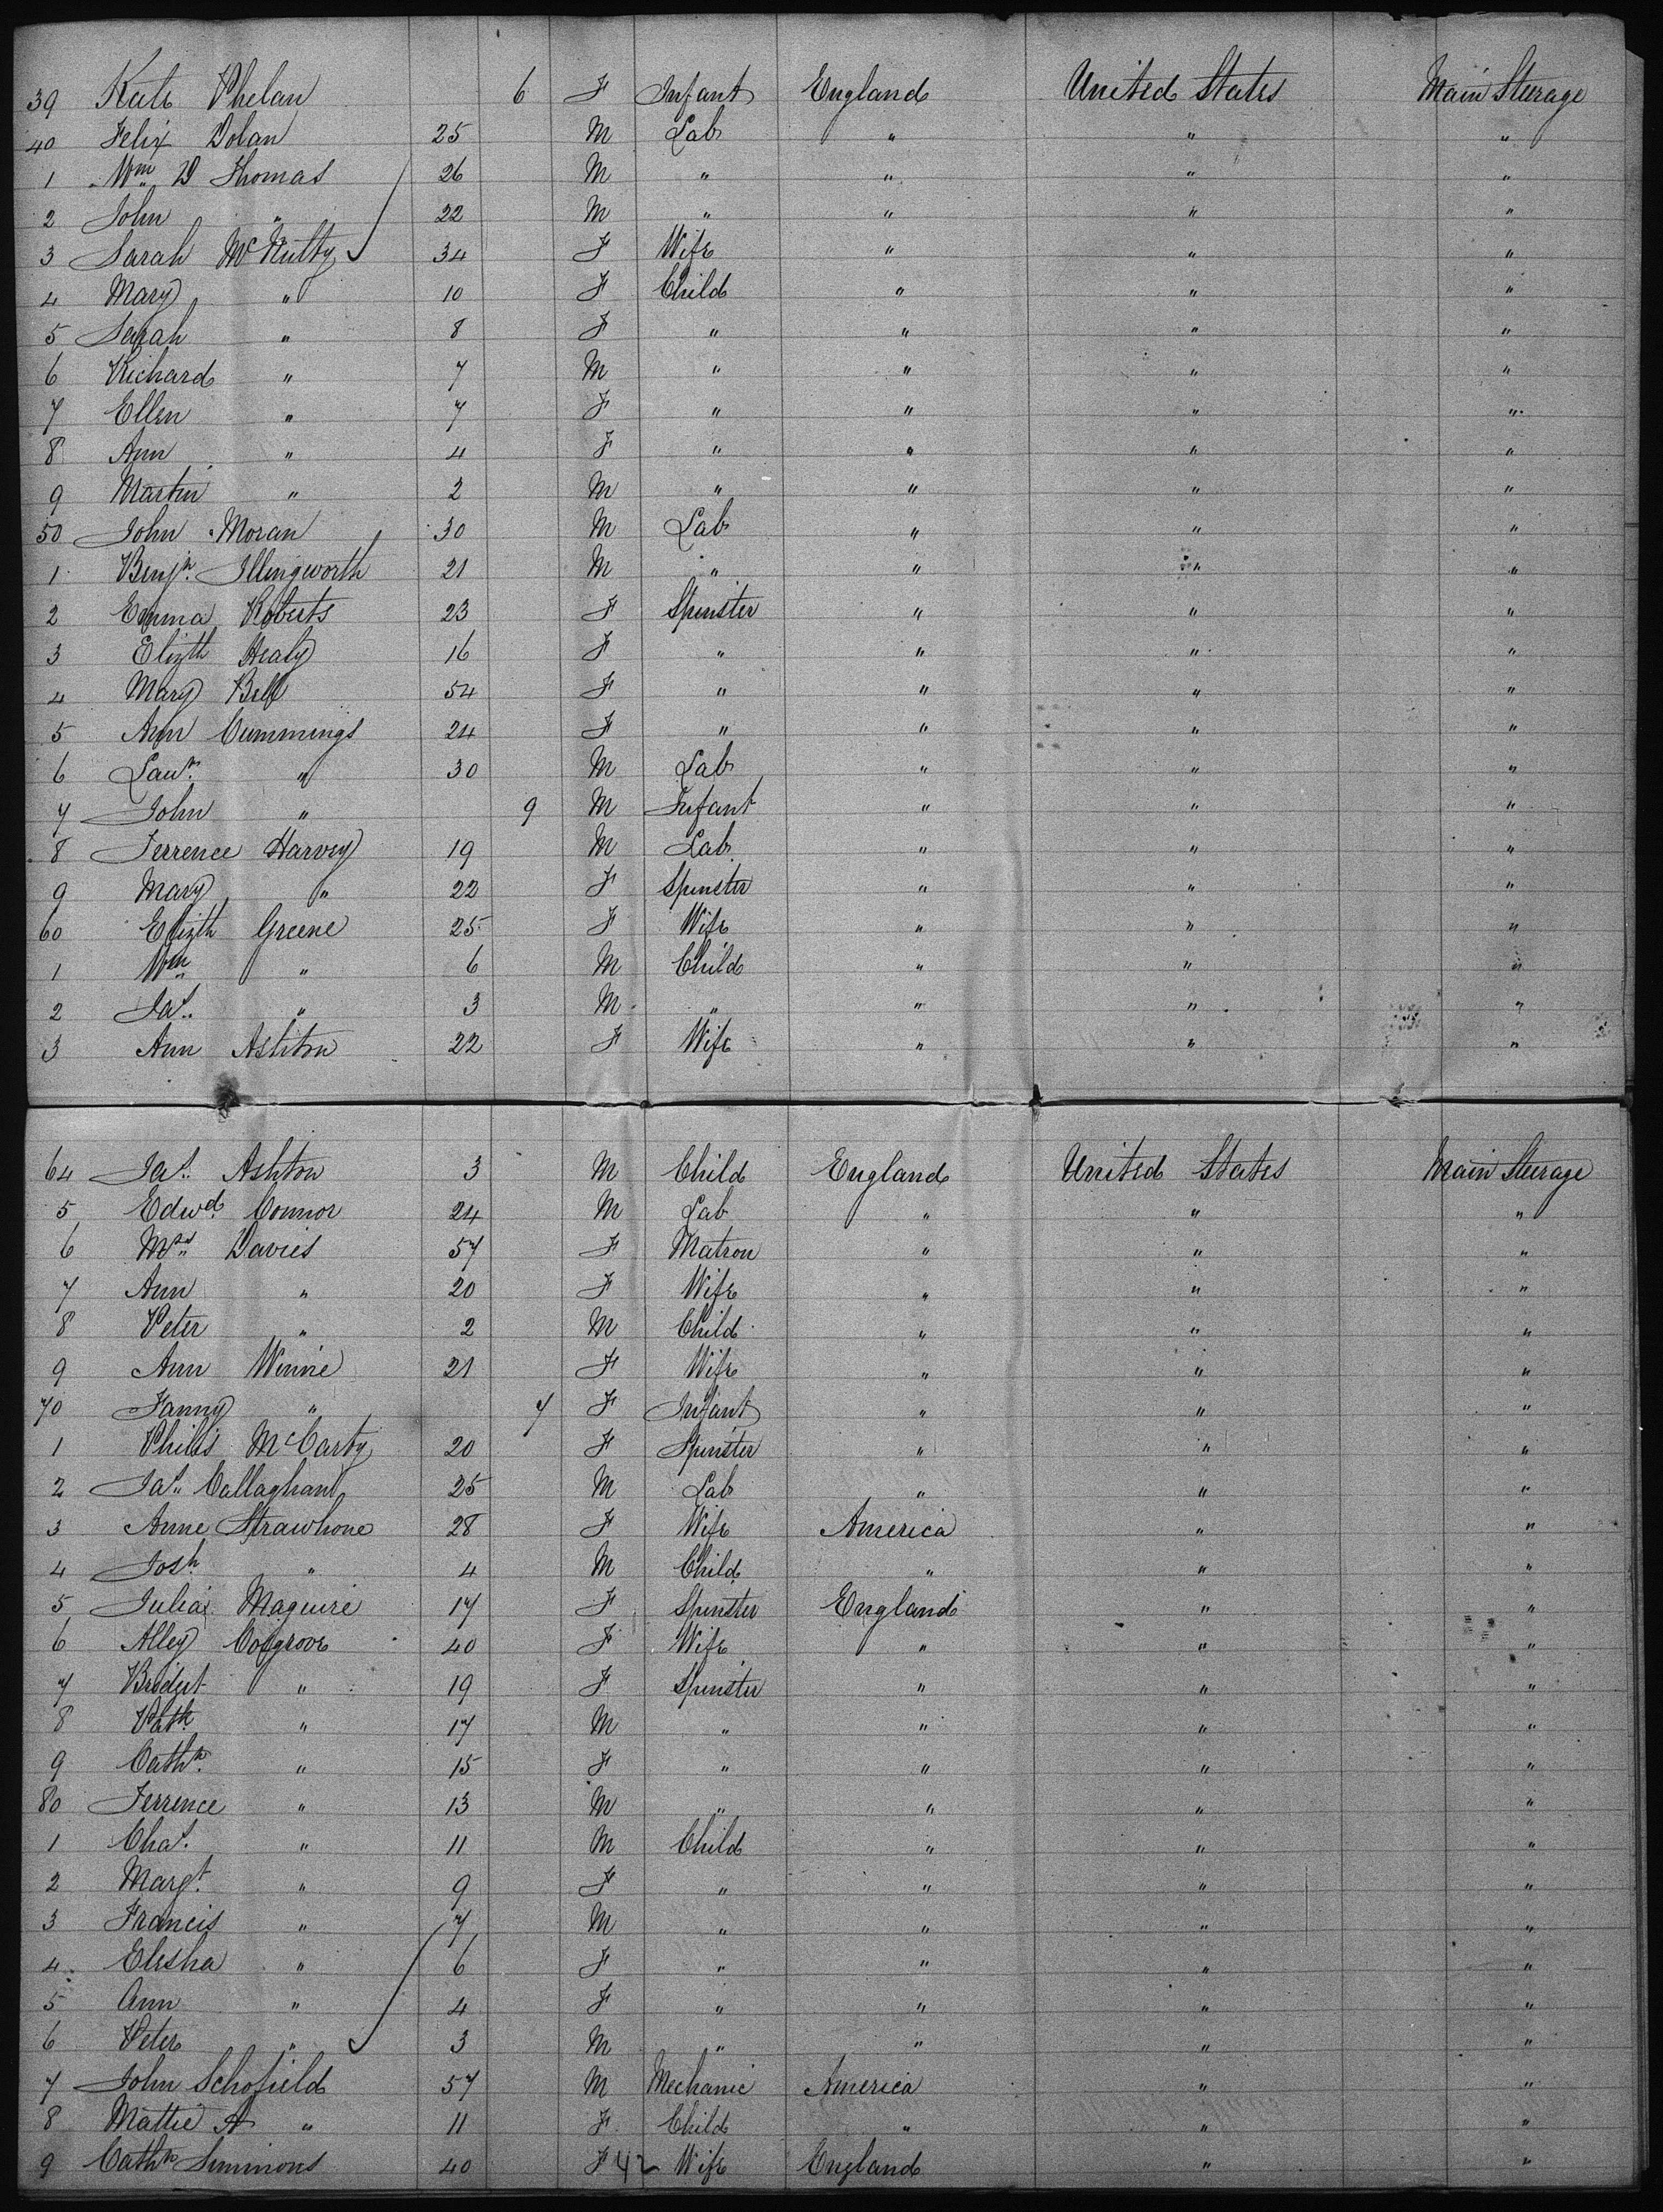 39 Kate Phelan 6 F Infant England United States Main Steerage
40 Felix Dolan 25 M Lab " " "
1 Wm D Thomas 26 M " " " "
2 John " 22 M " " " "
3 Sarah McNulty 34 F Wife " " "
4 Mary " 10 F Child " " "
5 Sarah " 8 F " " " "
6 Richard " 7 M " " " "
7 Ellen " 7 F " " " "
8 Ann " 4 F " " " "
9 Martin " 2 M " " " "
50 John Moran 30 M Lab " " "
1 Benjn. Illingworth 21 M " " " "
2 Emma Roberts 23 F Spinster " " "
3 Elizth Healy 16 F " " " "
4 Mary Bell 54 F " " " "
5 Ann Cummings 24 F " " " "
6 Lawr. " 30 M Lab " " "
7 John " 9 M Infant " " "
8 Terrence Harvey 19 M Lab " " "
9 Mary " 22 F Spinster " " "
60 Elizth Greene 25 F Wife " " "
1 Wm " 6 M Child " " "
2 Jas. " 3 M " " " "
3 Ann Ashton 22 F Wife " " "
64 Jas. Ashton 3 M Child England United States Main Steerage
5 Edwd. Connor 24 M Lab " " "
6 Mrs. Davies 57 F Matron " " "
7 Ann " 20 F Wife " " "
8 Peter " 2 M Child " " "
9 Ann Winnie 21 F Wife " " "
70 Fanny " 7 F Infant " " "
1 Philis McCarty 20 F Spinster " " "
2 Jas. Callaghan 25 M Lab " " "
3 Anne Strawhone 28 F Wife America " "
4 Josh. " 4 M Child " " "
5 Julia Maguire 17 F Spinster England " "
6 Alley Cosgrove 40 F Wife " " "
7 Bridget " 19 F Spinster " " "
8 Patk " 17 M " " " "
9 Cathn. " 15 F " " " "
80 Terrence " 13 M " " " "
1 Chas. " 11 M Child " " "
2 Margt. " 9 F " " " "
3 Francis " 7 M " " " "
4 Elesha " 6 F " " " "
5 Ann " 4 F " " " "
6 Peter " 3 M " " " "
7 John Schofield 57 M Mechanic America " "
8 Mattie A " 11 F Child " " "
9 Cathn Simmons 40 F 42 Wife England " "